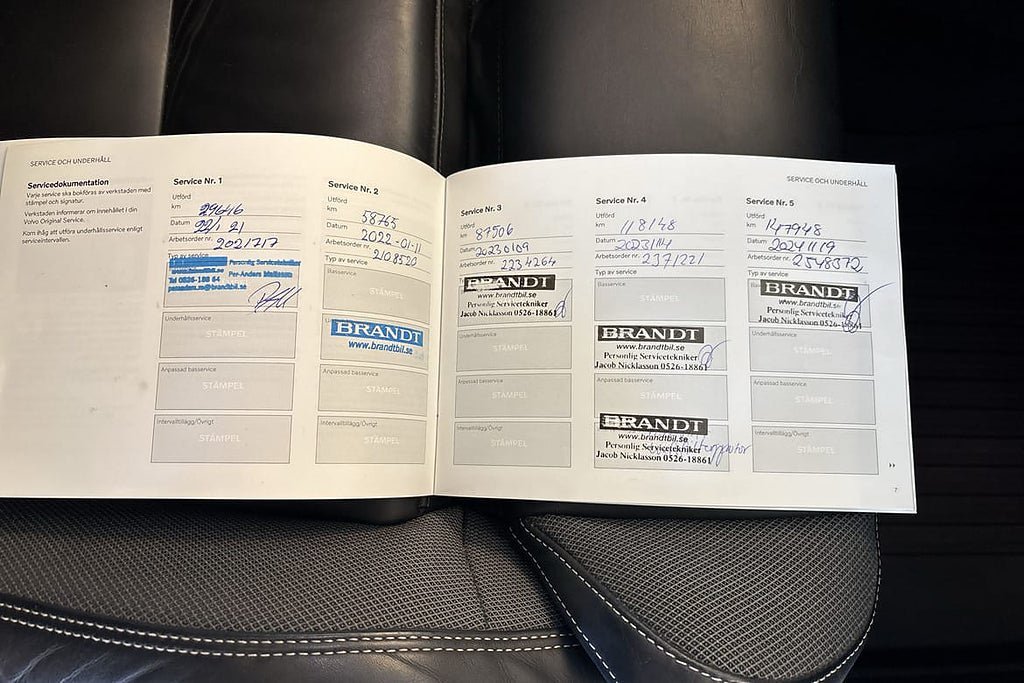 SERVICE OCH UNDERHÅLL
Servicedokumentation
Varje service ska bokföras av verkstaden med
stämpel och signatur.
Verkstaden informerar om innehållet i din
Volvo Original Service.
Kom ihåg att utföra underhållsservice enligt
serviceintervallen.
Service Nr. 1
Utförd
km 29646
Datum 22/1 21
Arbetsorder nr. 2021717
Typ av service
Personlig Servicetekniker
www.brandtbil.se
Tel 0526-188 64
Per-Anders
@brandtbil.se
Underhållsservice
STÄMPEL
Anpassad basservice
STÄMPEL
Intervalltillägg/Övrigt
STÄMPEL
Service Nr. 2
Utförd
km 58765
Datum 2022-01-11
Arbetsorder nr. 2108520
Typ av service
Basservice
STÄMPEL
BRANDT
www.brandtbil.se
Anpassad basservice
STÄMPEL
Intervalltillägg/Övrigt
STÄMPEL
Service Nr. 3
Utförd
km 87506
Datum 20230109
Arbetsorder nr. 2234264
BRANDT
www.brandtbil.se
Personlig Servicetekniker
Jacob Nicklasson 0526-18861
Underhållsservice
STÄMPEL
Anpassad basservice
STÄMPEL
Intervalltillägg/Övrigt
STÄMPEL
Service Nr. 4
Utförd
km 118148
Datum
Arbetsorder nr. 2371221
Typ av service
Basservice
STÄMPEL
BRANDT
www.brandtbil.se
Personlig Servicetekniker
Jacob Nicklasson 0526-18861
Anpassad basservice
STÄMPEL
BRANDT
www.brandtbil.se
Personlig Servicetekniker
Jacob Nicklasson 0526-18861
SERVICE OCH UNDERHÅLL
Service Nr. 5
Utförd
km 147948
Datum 20241119
Arbetsorder nr. 2548372
Typ av service
BRANDT
www.brandtbil.se
Personlig Servicetekniker
Jacob Nicklasson 0526-18861
Underhållsservice
STÄMPEL
Anpassad basservice
STÄMPEL
Intervalltillägg/Övrigt
STÄMPEL
7